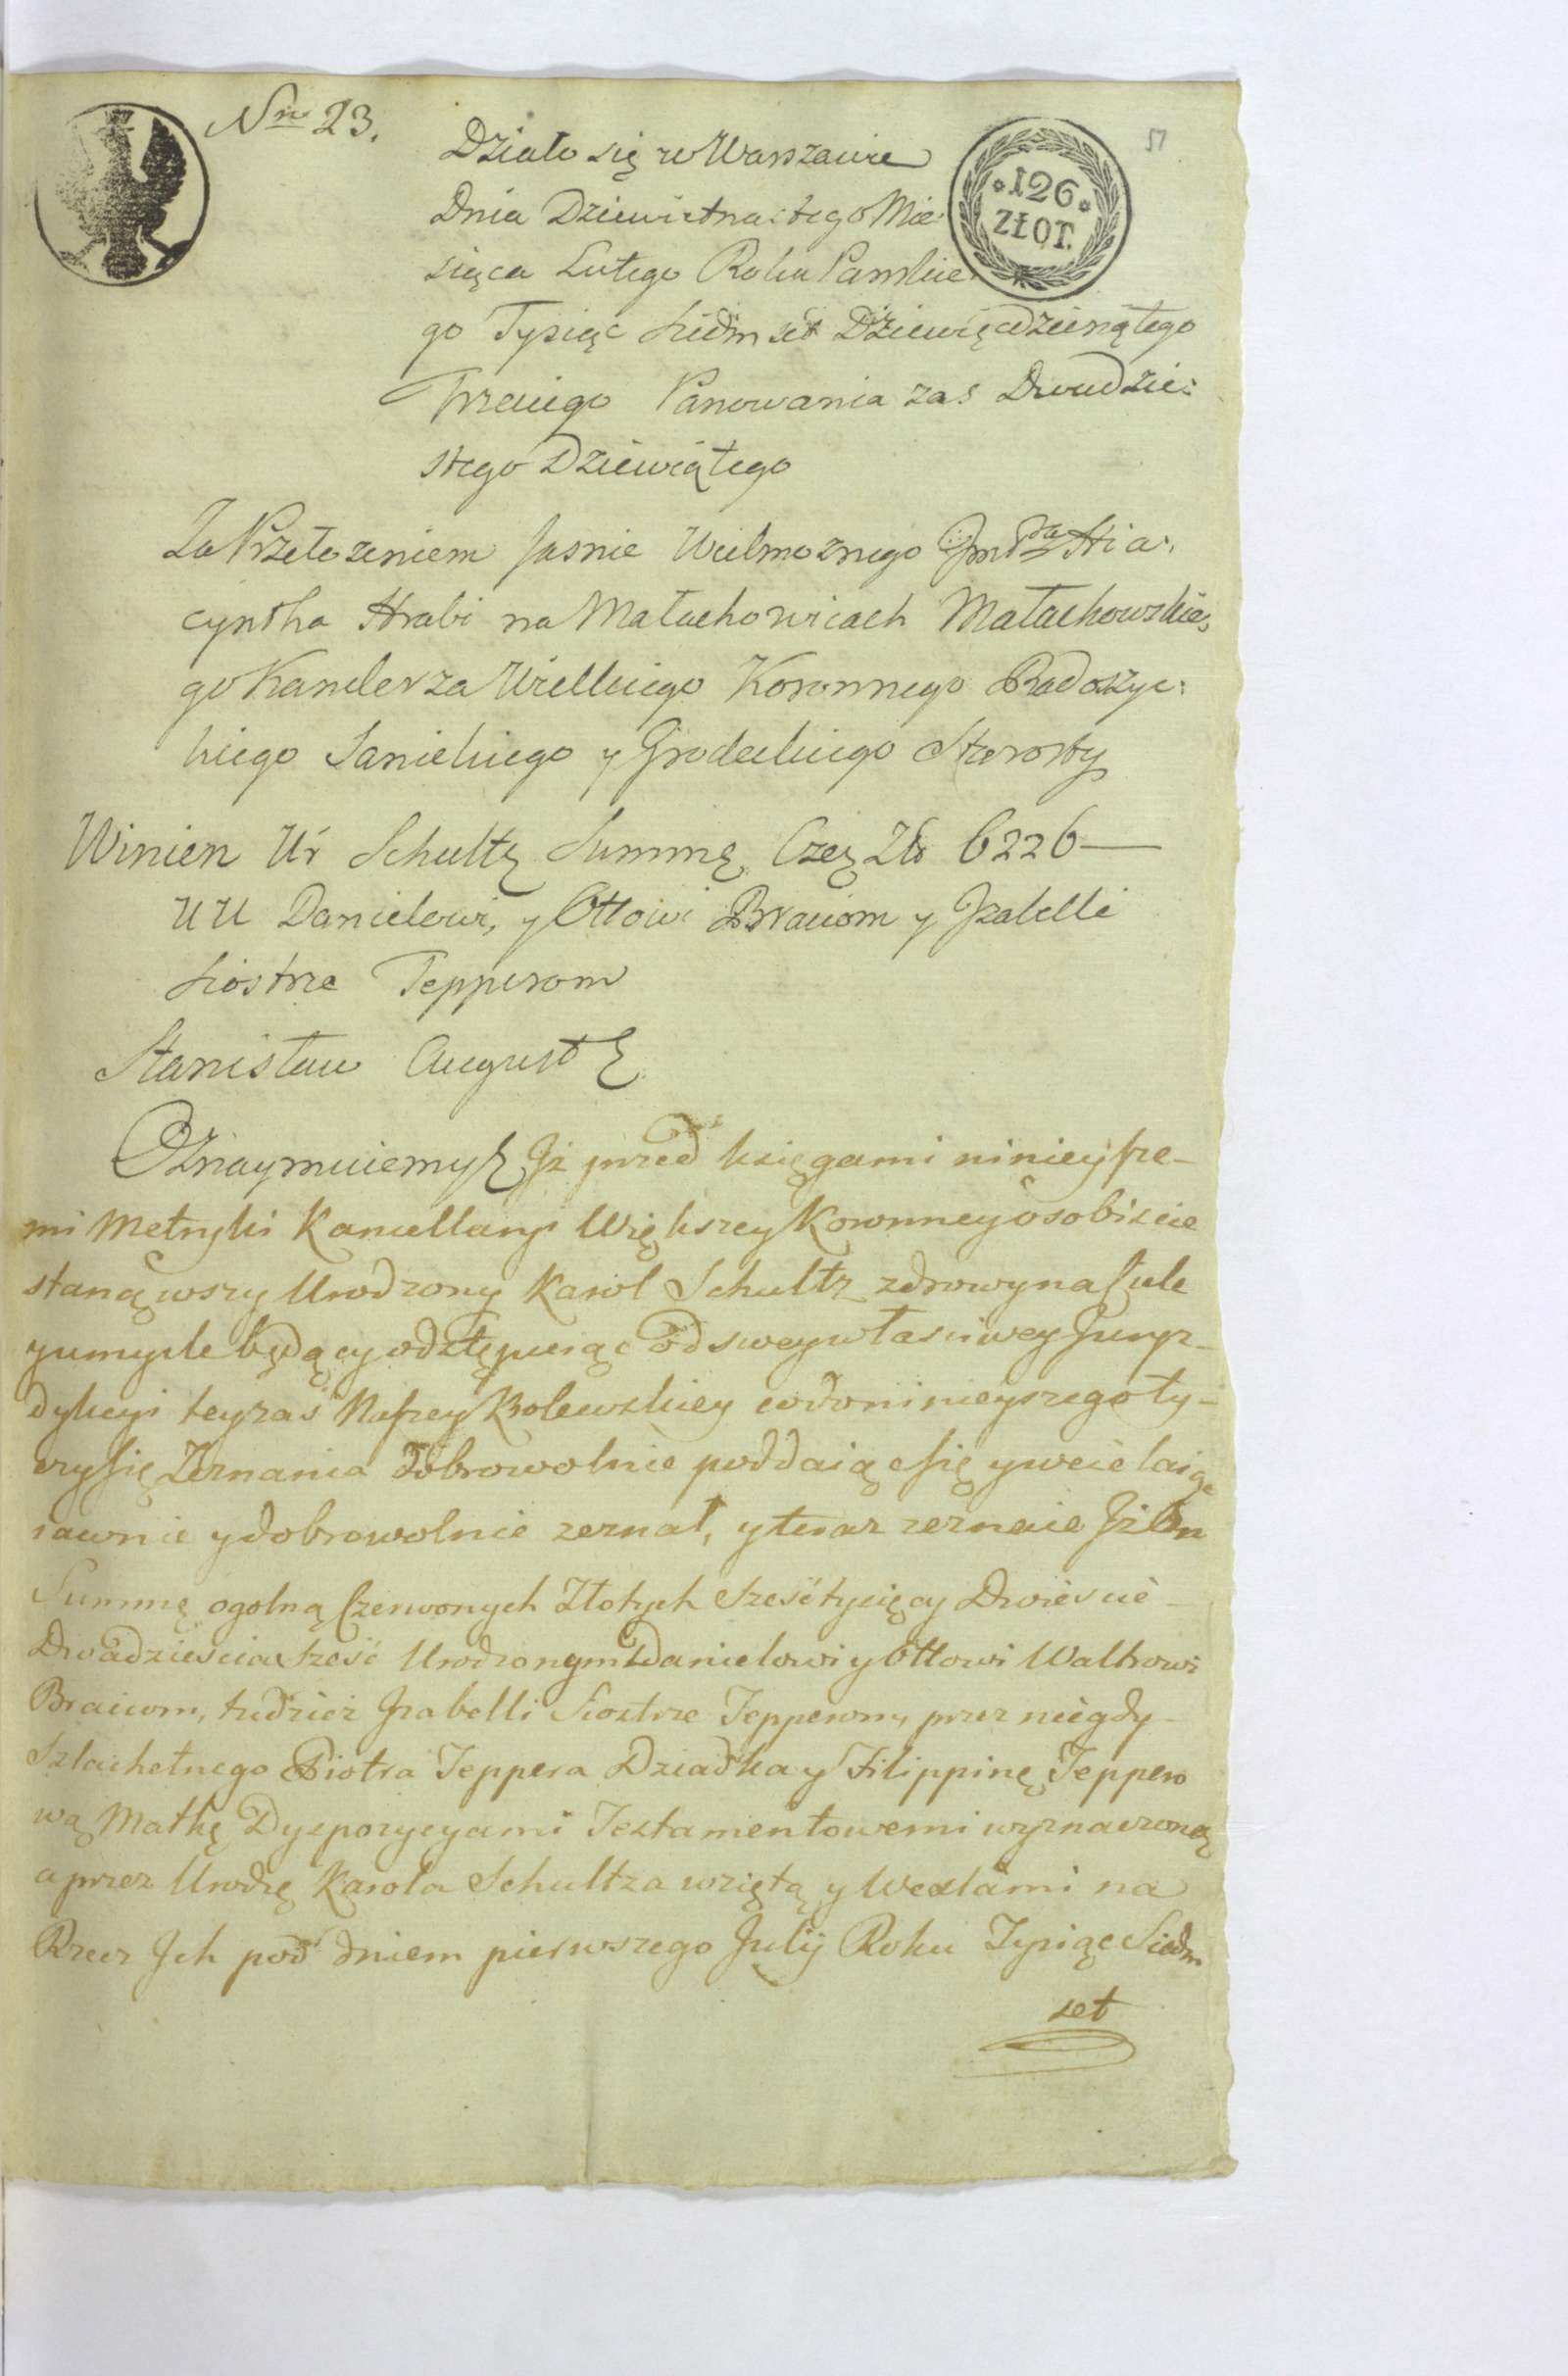 Nro 23.
51
*126*
ZŁOT.
Działo się w Warszawie
Dnia Dziewiętnastego Mie:
siąca Lutego Roku Pańskie:
go Tysiąc siedm set Dziewięćdziesiątego
Trzeciego Panowania zas Dwudzie:
stego Dziewiątego
Za Przełozeniem Jasnie Wielmoznego Jmć Pa Hia:
cyntha Hrabi na Małachowicach Małachowskie:
go Kanclerza Wielkiego Koronnego Radoszyc:
kiego Sanickiego y Grodeckiego Starosty
Winien Ur Schultz Summę Czer Zło 6226 —
UU Danielowi, y Ottowi Braciom y Izabelli
siostrze Tepperom
Stanisław August &
Oznaymuiemy & Iż przed księgami ninieysze-
mi Metryki Kancellaryi Większey Koronney osobiscie
stanąwszy Urodzony Karol Schultz zdrowy na ciele
y umysle będący odstępuiąc od swey własciwey Juryz-
dykcyi teyzas Naszey Krolewskiey co do ninieyszego ty-
czy się Zeznania dobrowolnie poddaiąc się y wcielaiąc
iawnie y dobrowolnie zeznał, y teraz zeznaie Iż On
Summę ogolną Czerwonych Złotych Szesć tysięcy Dwiescie
Dwadziescia Szesć Urodzonym Danielowi y Ottowi Waltrowi
Braciom, tudzież Izabelli Siostrze Tepperom, przez niegdy
Szlachetnego Piotra Teppera Dziadka y Filippinę Teppero
wą Matkę Dyspozycyami Testamentowemi wyznaczoną
a przez Urodzę Karola Schultza wziętą y Wexlami na
Rzecz Ich pod dniem pierwszego Julij Roku Tysiąc Siedm
set